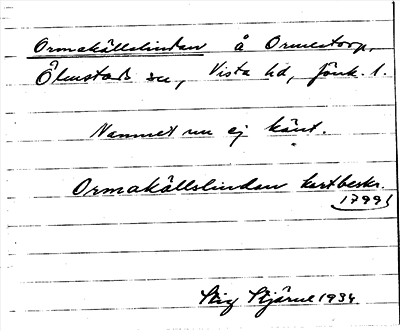 Ormakällslindan å Ormestorp,
Ölmstads sn, Vista hd, Jönk. l.
Namnet nu ej känt.
Ormakällslindan kartbeskr.
1799
Stig Stjärne 1934